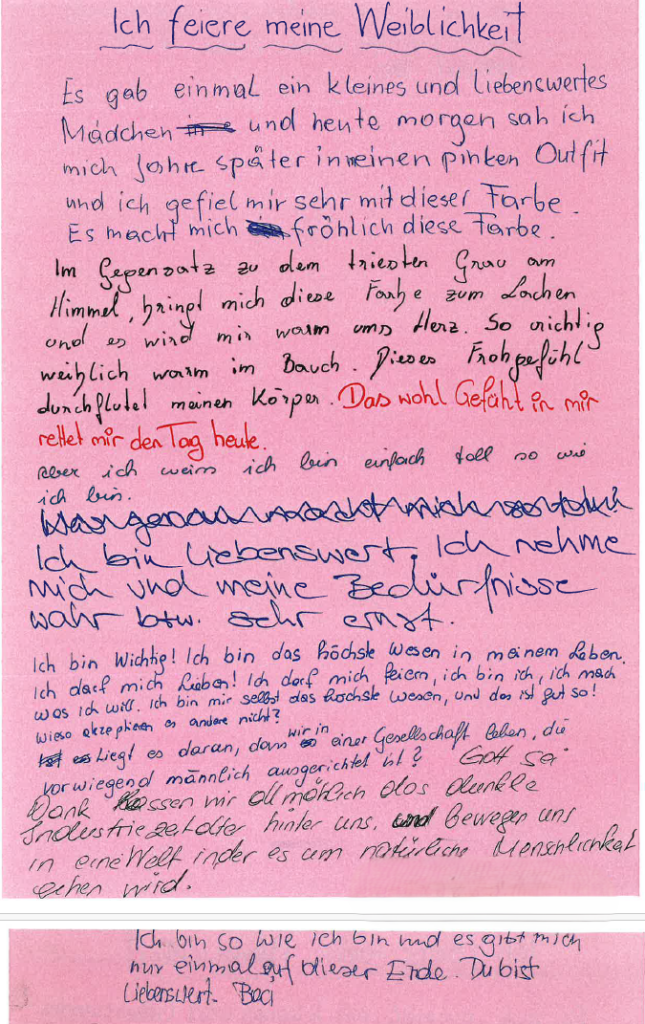 Ich feiere meine Weiblichkeit
Es gab einmal ein kleines und liebenswertes
Mädchen und heute morgen sah ich
mich Jahre später in meinen pinken Outfit
und ich gefiel mir sehr mit dieser Farbe.
Es macht mich fröhlich diese Farbe.
Im Gegensatz zu dem triesten Grau am
Himmel, bringt mich diese Farbe zum Lachen
und es wird mir warm ums Herz. So richtig
weiblich warm im Bauch. Dieses Frohgefühl
durchflutet meinen Körper. Das wohl Gefühl in mir
rettet mir den Tag heute.
aber ich weiss ich bin einfach toll so wie
ich bin.
Ich bin Liebenswert. Ich nehme
mich und meine Bedürfnisse
wahr btw. sehr ernst.
Ich bin Wichtig! Ich bin das höchste Wesen in meinem Leben.
Ich darf mich Lieben! Ich darf mich feiern, ich bin ich, ich mach
was ich will. Ich bin mir selbst das höchste Wesen, und das ist gut so!
wieso akzeptieren es andere nicht?
Liegt es daran, dass wir in einer Gesellschaft leben, die
vorwiegend männlich ausgerichtet ist? Gott sei
Dank lassen wir allmählich das dunkle
Industriezeitalter hinter uns, und bewegen uns
in eine Welt in der es um natürliche Menschlichkeit
gehen wird.
Ich bin so wie ich bin und es gibt mich
nur einmal auf dieser Erde. Du bist
Liebenswert.